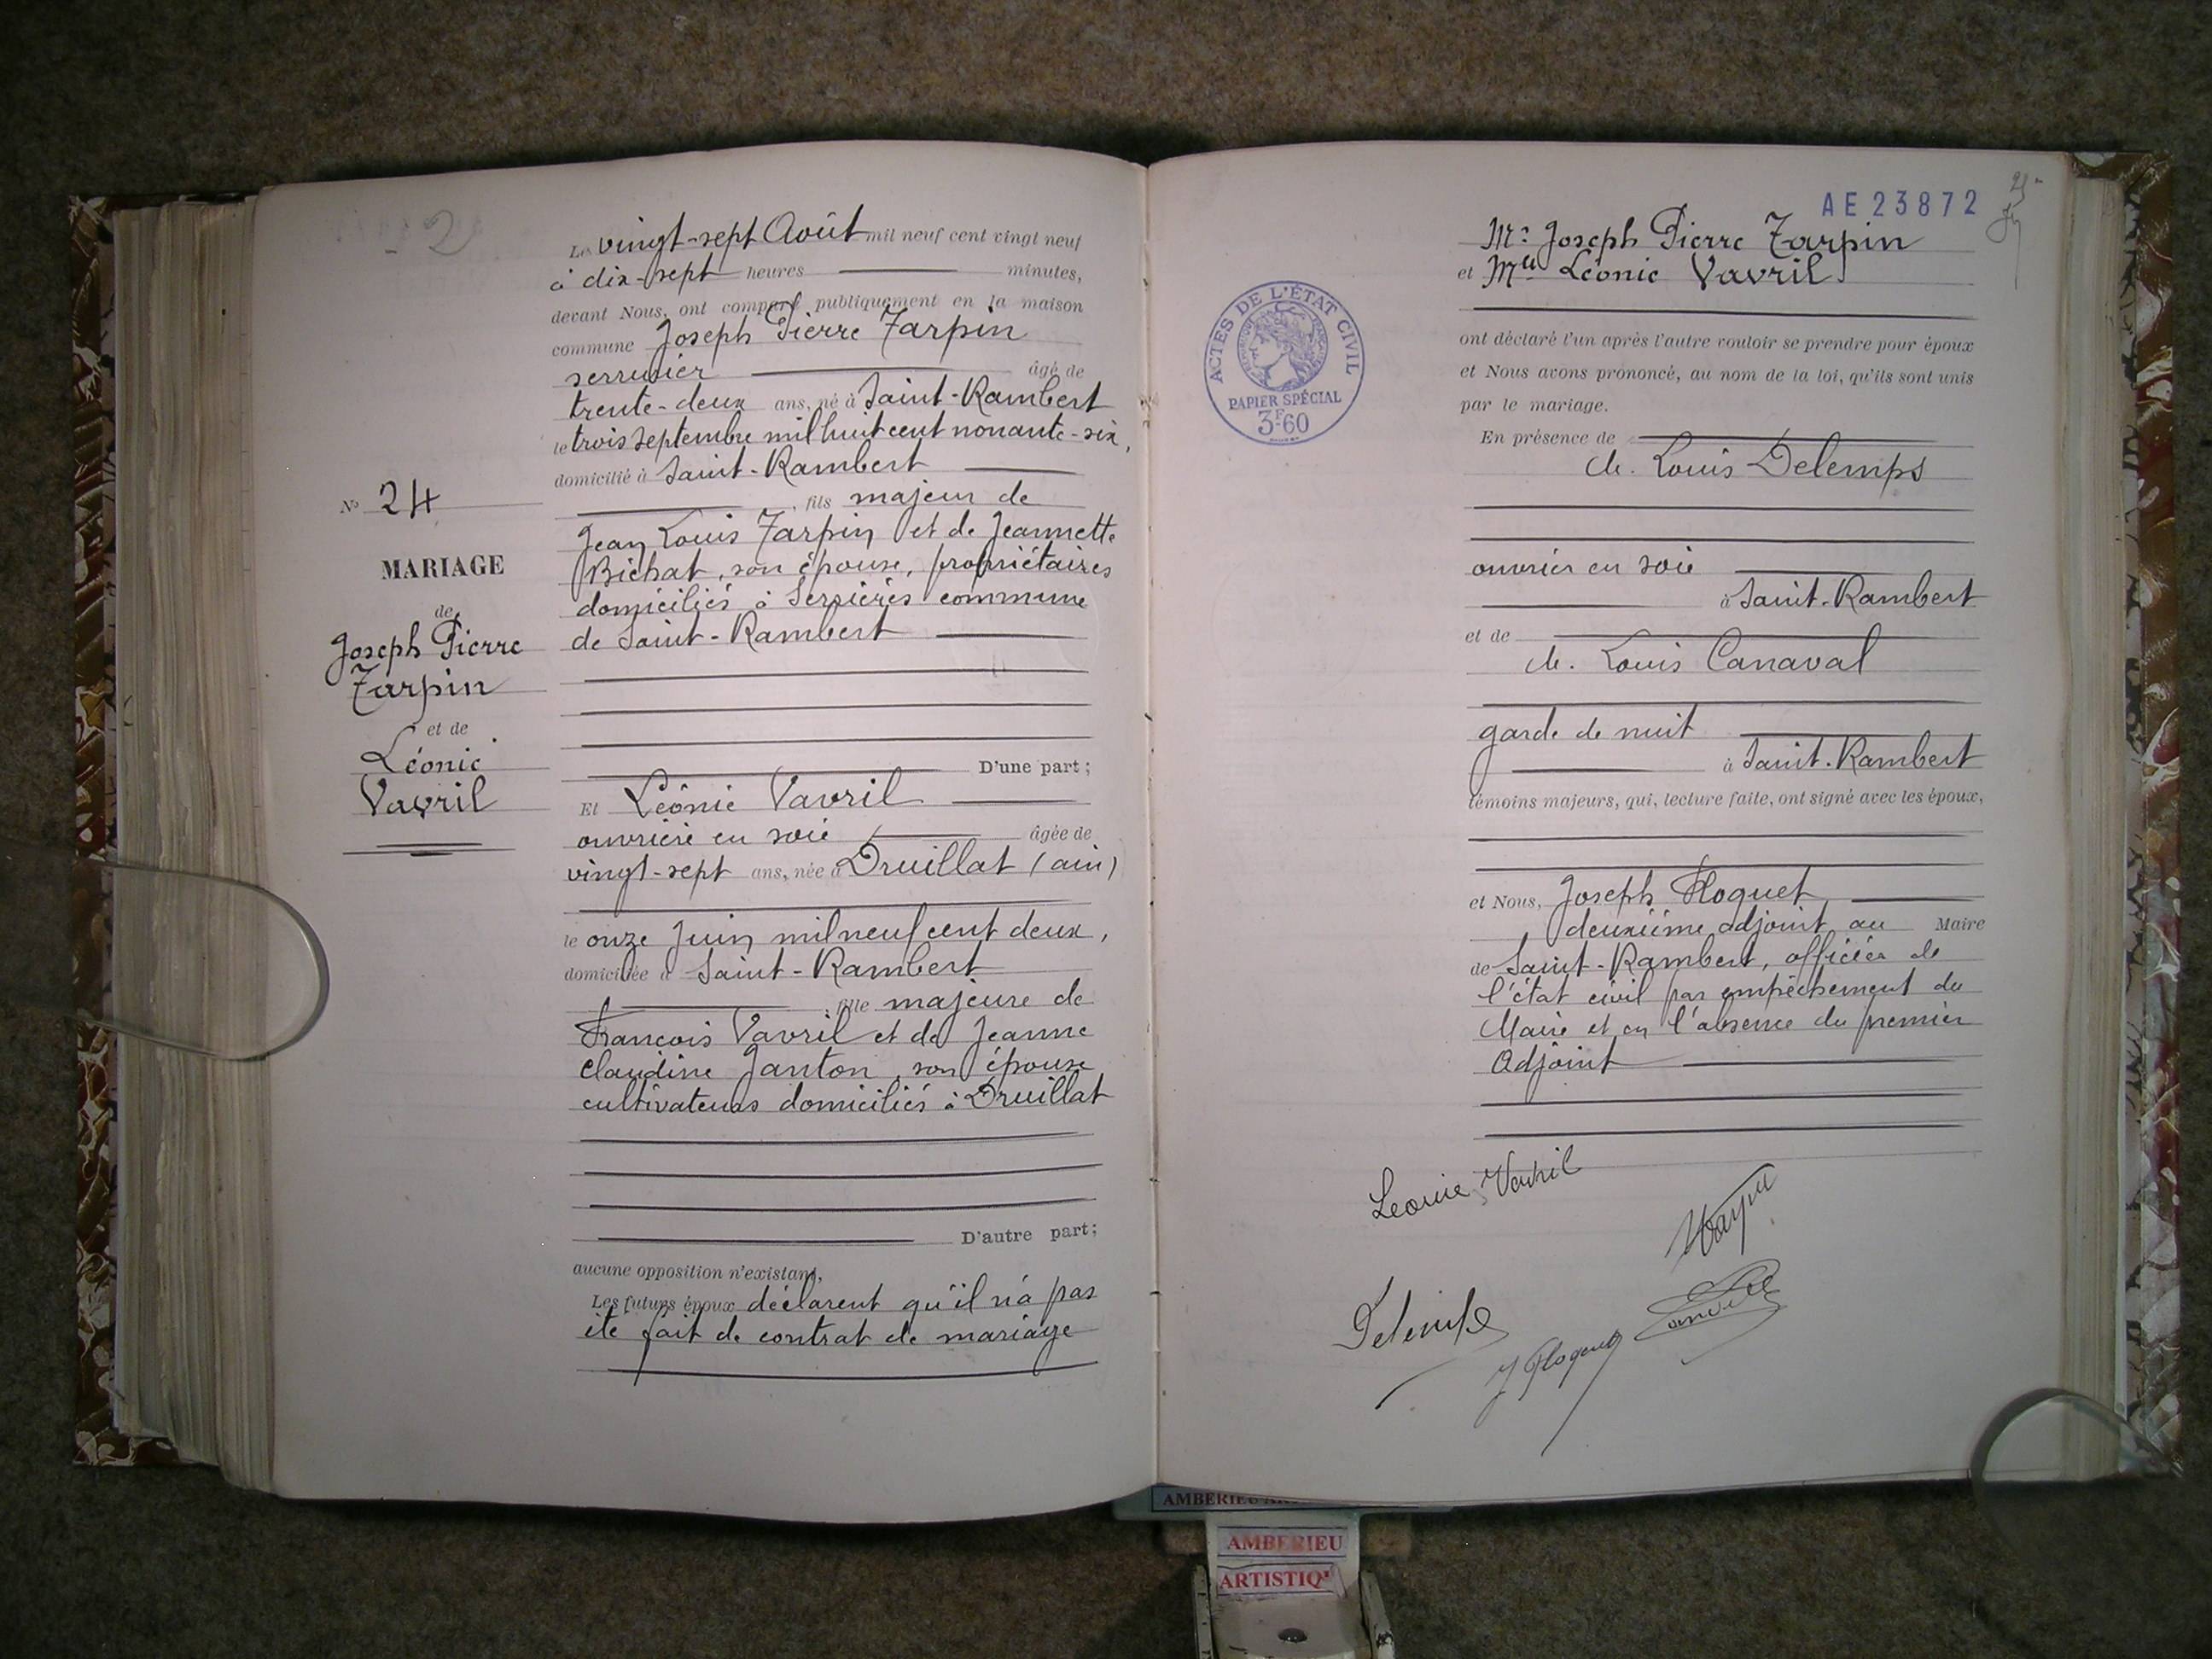 Le vingt-sept Août mil neuf cent vingt neuf
à dix-sept heures minutes,
devant Nous, ont comparu publiquement en la maison
commune Joseph Pierre Tarpin
serrurier âgé de
trente-deux ans, né à Saint-Rambert
le trois septembre mil huit cent nonante-six,
domicilié à Saint-Rambert
fils majeur de
Jean Louis Tarpin et de Jeannette
Bichat, son épouse, propriétaires
domiciliés à Serrières commune
de Saint-Rambert
D'une part;
N° 24
MARIAGE
de
Joseph Pierre
Tarpin
et de
Léonie
Vavril
Et Léonie Vavril
ouvrière en soie âgée de
vingt-sept ans, née à Druillat (ain)
le onze Juin mil neuf cent deux,
domiciliée à Saint-Rambert
fille majeure de
François Vavril et de Jeanne
Claudine Janton, son épouse
cultivateurs domiciliés à Druillat
D'autre part;
aucune opposition n'existant,
Les futurs époux déclarent qu'il n'a pas
été fait de contrat de mariage
AE 23872
ACTES DE L'ÉTAT CIVIL
PAPIER SPÉCIAL
3F60
Mr Joseph Pierre Tarpin
et Mlle Léonie Vavril
ont déclaré l'un après l'autre vouloir se prendre pour époux
et Nous avons prononcé, au nom de la loi, qu'ils sont unis
par le mariage.
En présence de
M. Louis Delemps
ouvrier en soie
à Saint-Rambert
et de
M. Louis Canaval
garde de nuit
à Saint-Rambert
témoins majeurs, qui, lecture faite, ont signé avec les époux,
et Nous, Joseph Floquet
deuxième adjoint au Maire
de Saint-Rambert, officier de
l'état civil par empêchement du
Maire et en l'absence du premier
Adjoint
Leonie Vavril
Delemps
J Floquet
AMBERIEU
AMBERIEU
ARTISTIQ